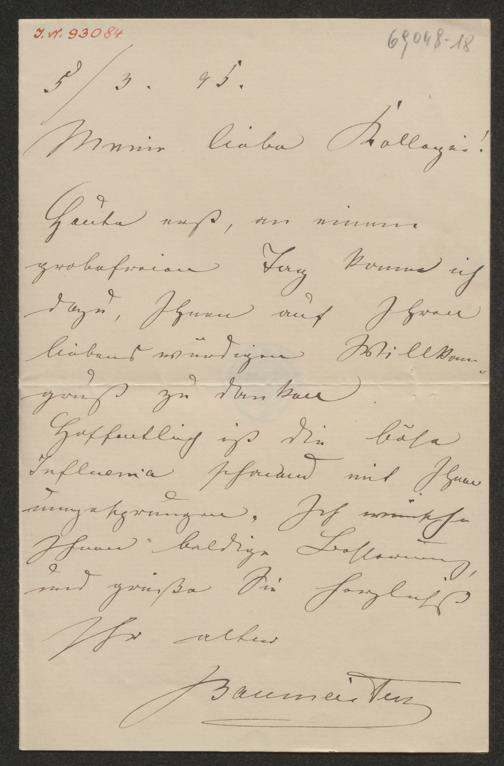 J. N. 93084
69048-18
5/3. 95.
Meine liebe Kollegin!
Heute erst, an einem
probefreien Tag komme ich
dazu, Ihnen auf Ihren
liebenswürdigen Willkomm-
gruß zu danken
Hoffentlich ist die böse
Influenza schonend mit Ihnen
umgesprungen. Ich wünsche
Ihnen baldige Besserung,
und grüße Sie herzlichst
Ihr alter
Baumeister